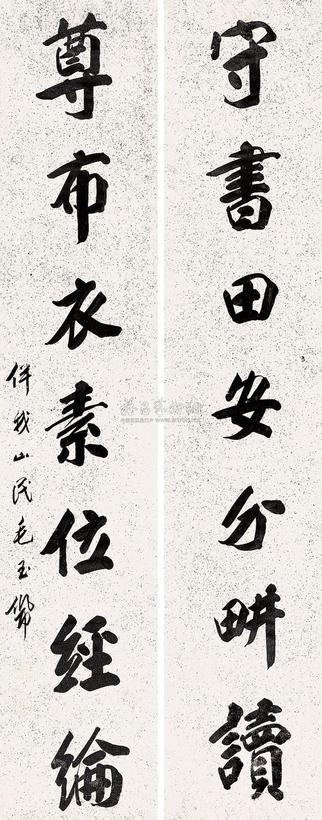 守書田安分畊讀
尊布衣素位經綸
伴我山民毛玉佩